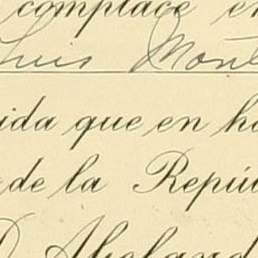 complace en
Luis Mont
ida que en ho
de la Repú
D. Abelard